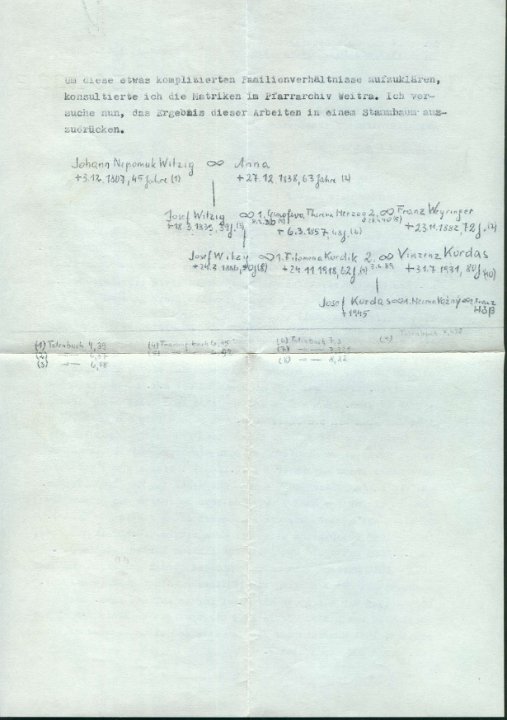 Um diese etwas komplizierten Familienverhältnisse aufzuklären,
konsultierte ich die Matriken im Pfarrarchiv Weitra. Ich ver-
suche nun, das Ergebnis dieser Arbeiten in einem Stammbaum aus-
zudrücken.
Johann Nepomuk Witzig ∞ Anna
+3.12.1807, 45 Jahre (1) +27.12.1838, 63 Jahre (2)
Josef Witzig ∞ 1. Genofeva Theresia Herzog 2. ∞ Franz Weyringer
+18.3.1839, 39J. (3) +6.3.1857, (6) +23.11.1882, 72J. (7)
Josef Witzig ∞ 1. Filomena Kordik 2. ∞ Vinzenz Kordas
+24.3.1886, (8) +24.11.1918, 62J. (9) +31.7.1931, 80J. (10)
Josef Kordas ∞ 1. Hermine ∞ 2. Franz
+1945 Höß
(1) Totenbuch 4,39 (4) Trauungsbuch (6) Totenbuch 7,3 (9) Totenbuch
(2) —"— (5) —"— (7) —"—
(3) —"— (8) —"—